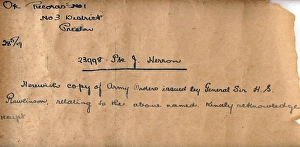 Records No 1
No 3 District
Preston
23998 Pte J. Herron
Herewith copy of Army Orders issued by General Sir H. S.
Rawlinson, relating to the above named. Kindly acknowledge
receipt